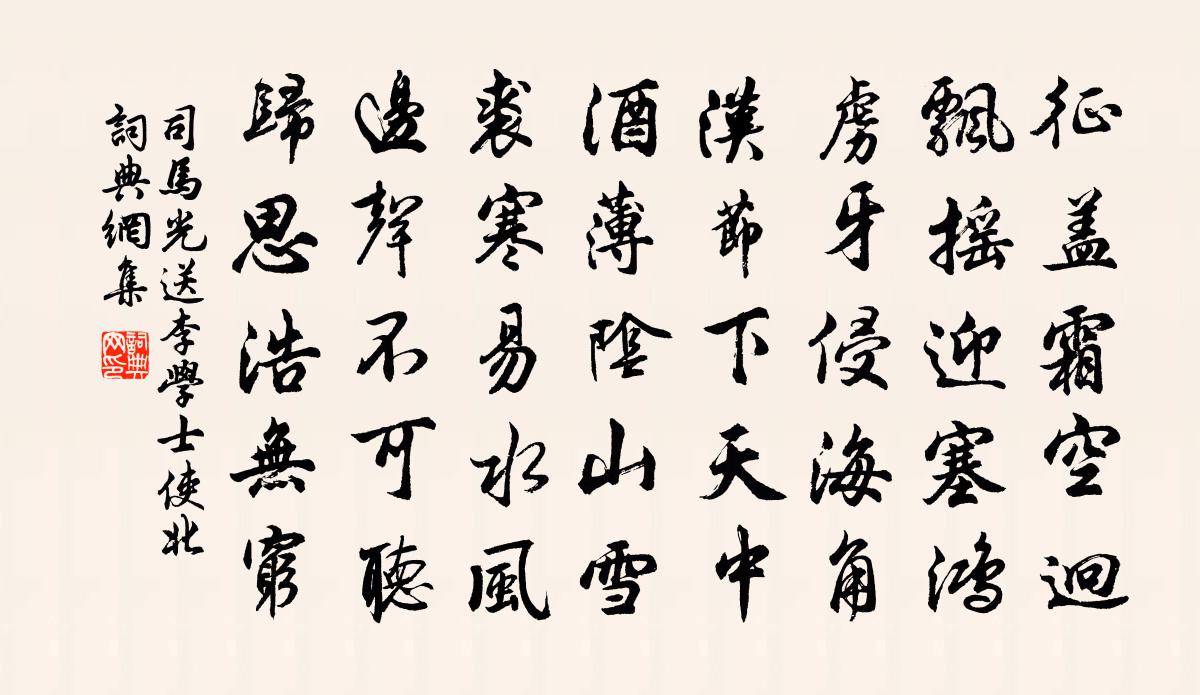 征盖霜空迥
飄摇迎塞鴻
虜牙侵海角
漢節下天中
酒薄陰山雪
裘寒易水風
邊聲不可聽
歸思浩無窮
司馬光送李學士使北
詞典網集
詞典網印